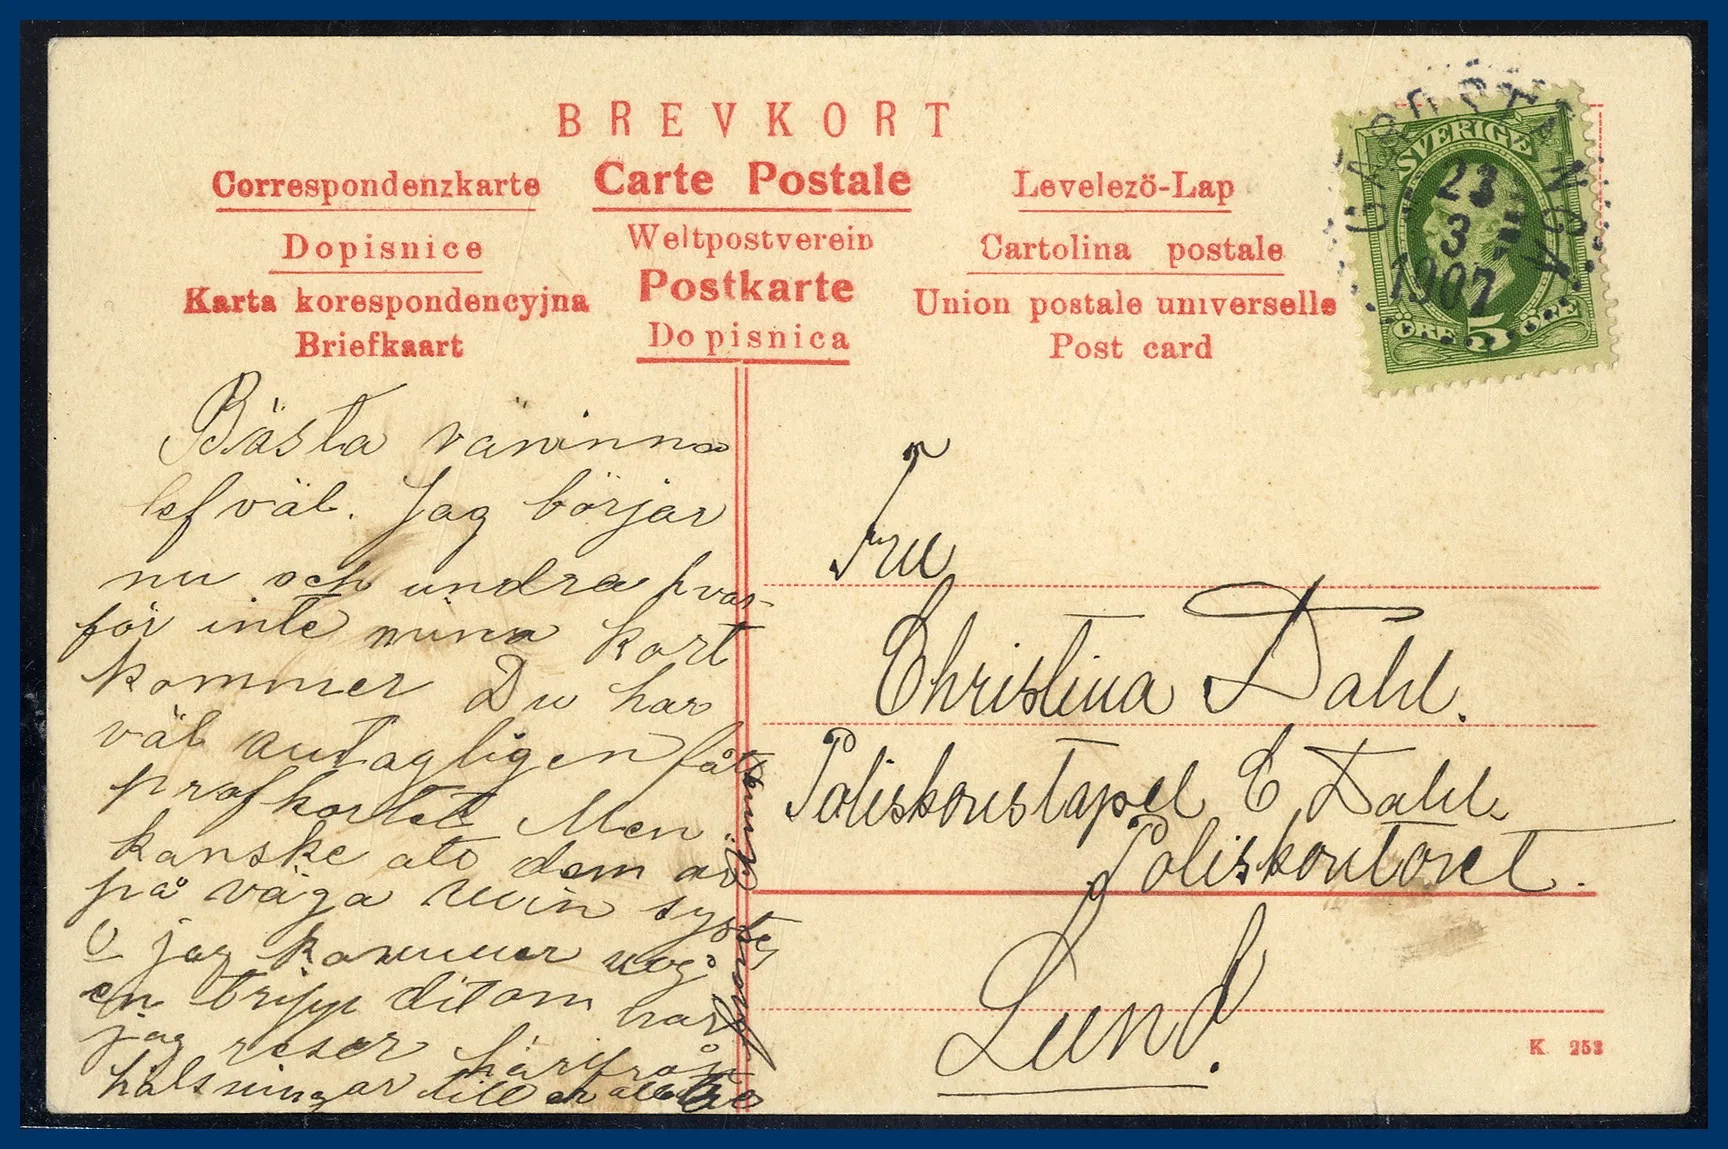 BREVKORT
Correspondenzkarte
Carte Postale
Levelező-Lap
Dopisnice
Weltpostverein
Cartolina postale
Karta korespondencyjna
Postkarte
Union postale universelle
Briefkaart
Dopisnica
Post card
SVERIGE
23
3
1907
ÖRE 5 ÖRE
Bästa väninna
lef väl. Jag börjar
nu och undra hvar-
för inte mina kort
kommer Du har
väl antagligen fått
profkortet Men
kanske att dem är
på väga min syster
o jag kommer nog
en tripp dit om
jag reser härifrån
hälsningar till er alla
Fru
Christina Dahl.
Poliskonstapel C Dahl.
Poliskontoret.
Lund.
K 253